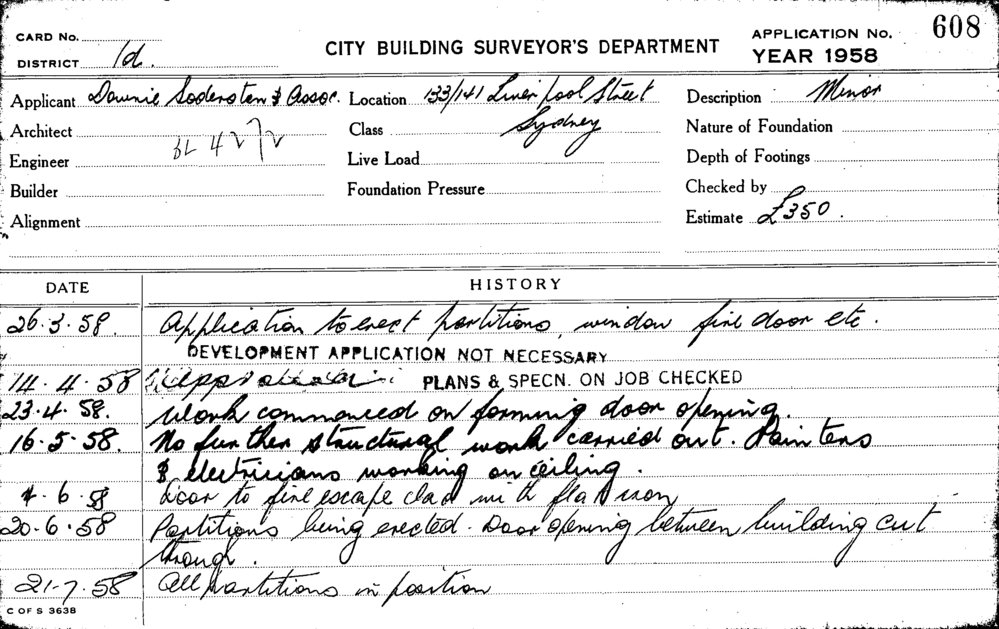 CARD No.
DISTRICT 1d.
CITY BUILDING SURVEYOR'S DEPARTMENT
APPLICATION No. 608
YEAR 1958
Applicant Downie Soderston & Assoc. Location 133/141 Liverpool Street Description Minor
Architect Class Sydney Nature of Foundation
BL 4272
Engineer Live Load Depth of Footings
Builder Foundation Pressure Checked by
Alignment Estimate £350.
DATE HISTORY
26.3.58. Application to erect partitions, window fire door etc.
DEVELOPMENT APPLICATION NOT NECESSARY
14.4.58 PLANS & SPECN. ON JOB CHECKED
23.4.58. Work commenced on forming door opening.
16.5.58. No further structural work carried out. Painters
& electricians working on ceiling.
4.6.58 Door to fire escape clad with flat iron
20.6.58 Partitions being erected. Door opening between building cut
through.
21.7.58 All partitions in position
C OF S 3638